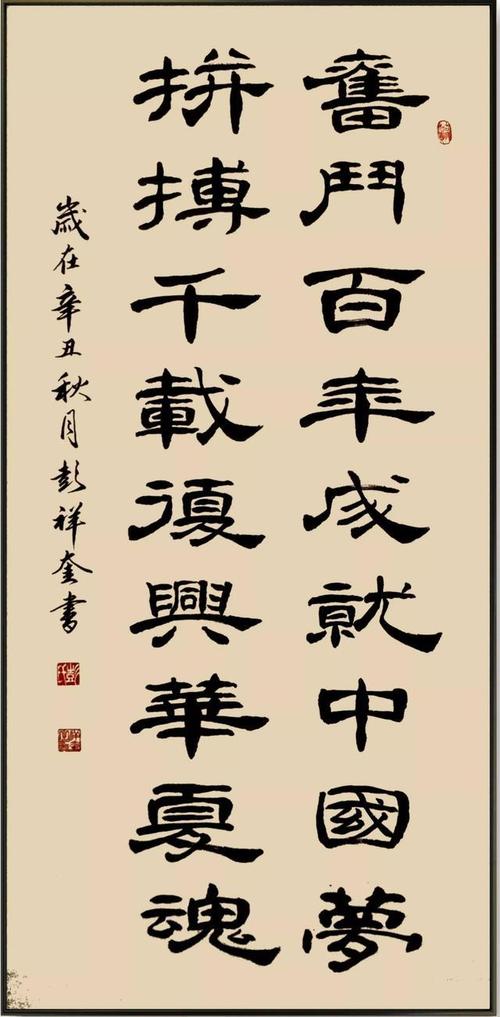 奮鬥百年成就中國夢
拼搏千載復興華夏魂
歲在辛丑秋月彭祥奎書